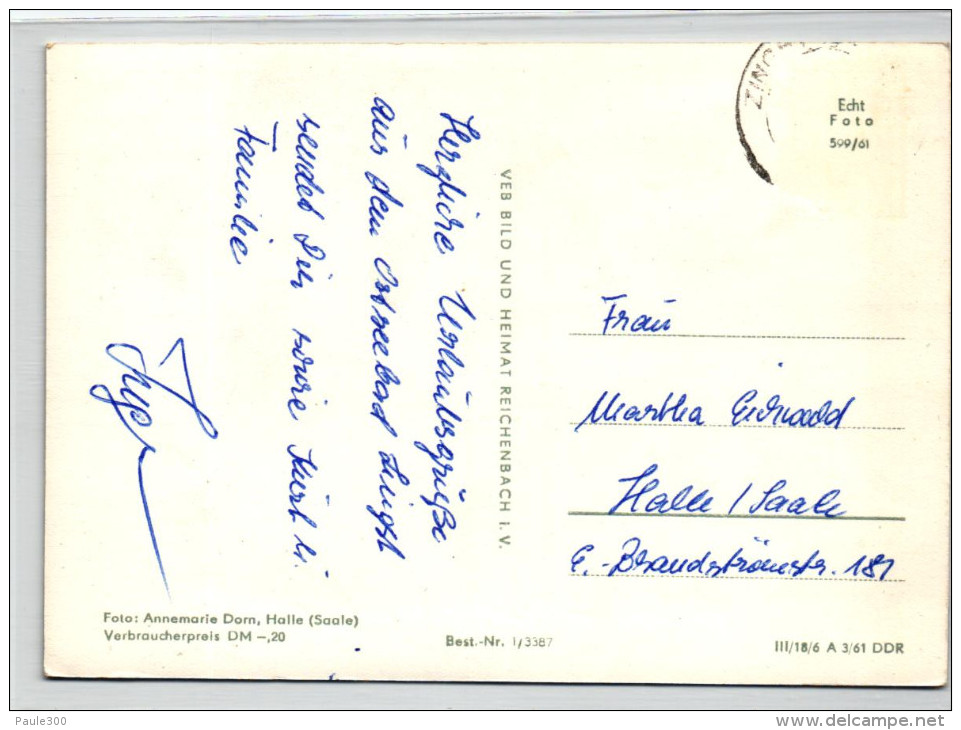 Herzliche Urlaubsgrüße
aus dem Ostseebad Zingst
sendet Dir sowie Kurt u.
Familie
VEB BILD UND HEIMAT REICHENBACH i. V.
Echt
Foto
599/61
Frau
Martha
Halle / Saale
E.-Brandströmstr. 181
Foto: Annemarie Dorn, Halle (Saale)
Verbraucherpreis DM –,20
Best.-Nr. 1/3387
III/18/6 A 3/61 DDR
Paule300
www.delcampe.net